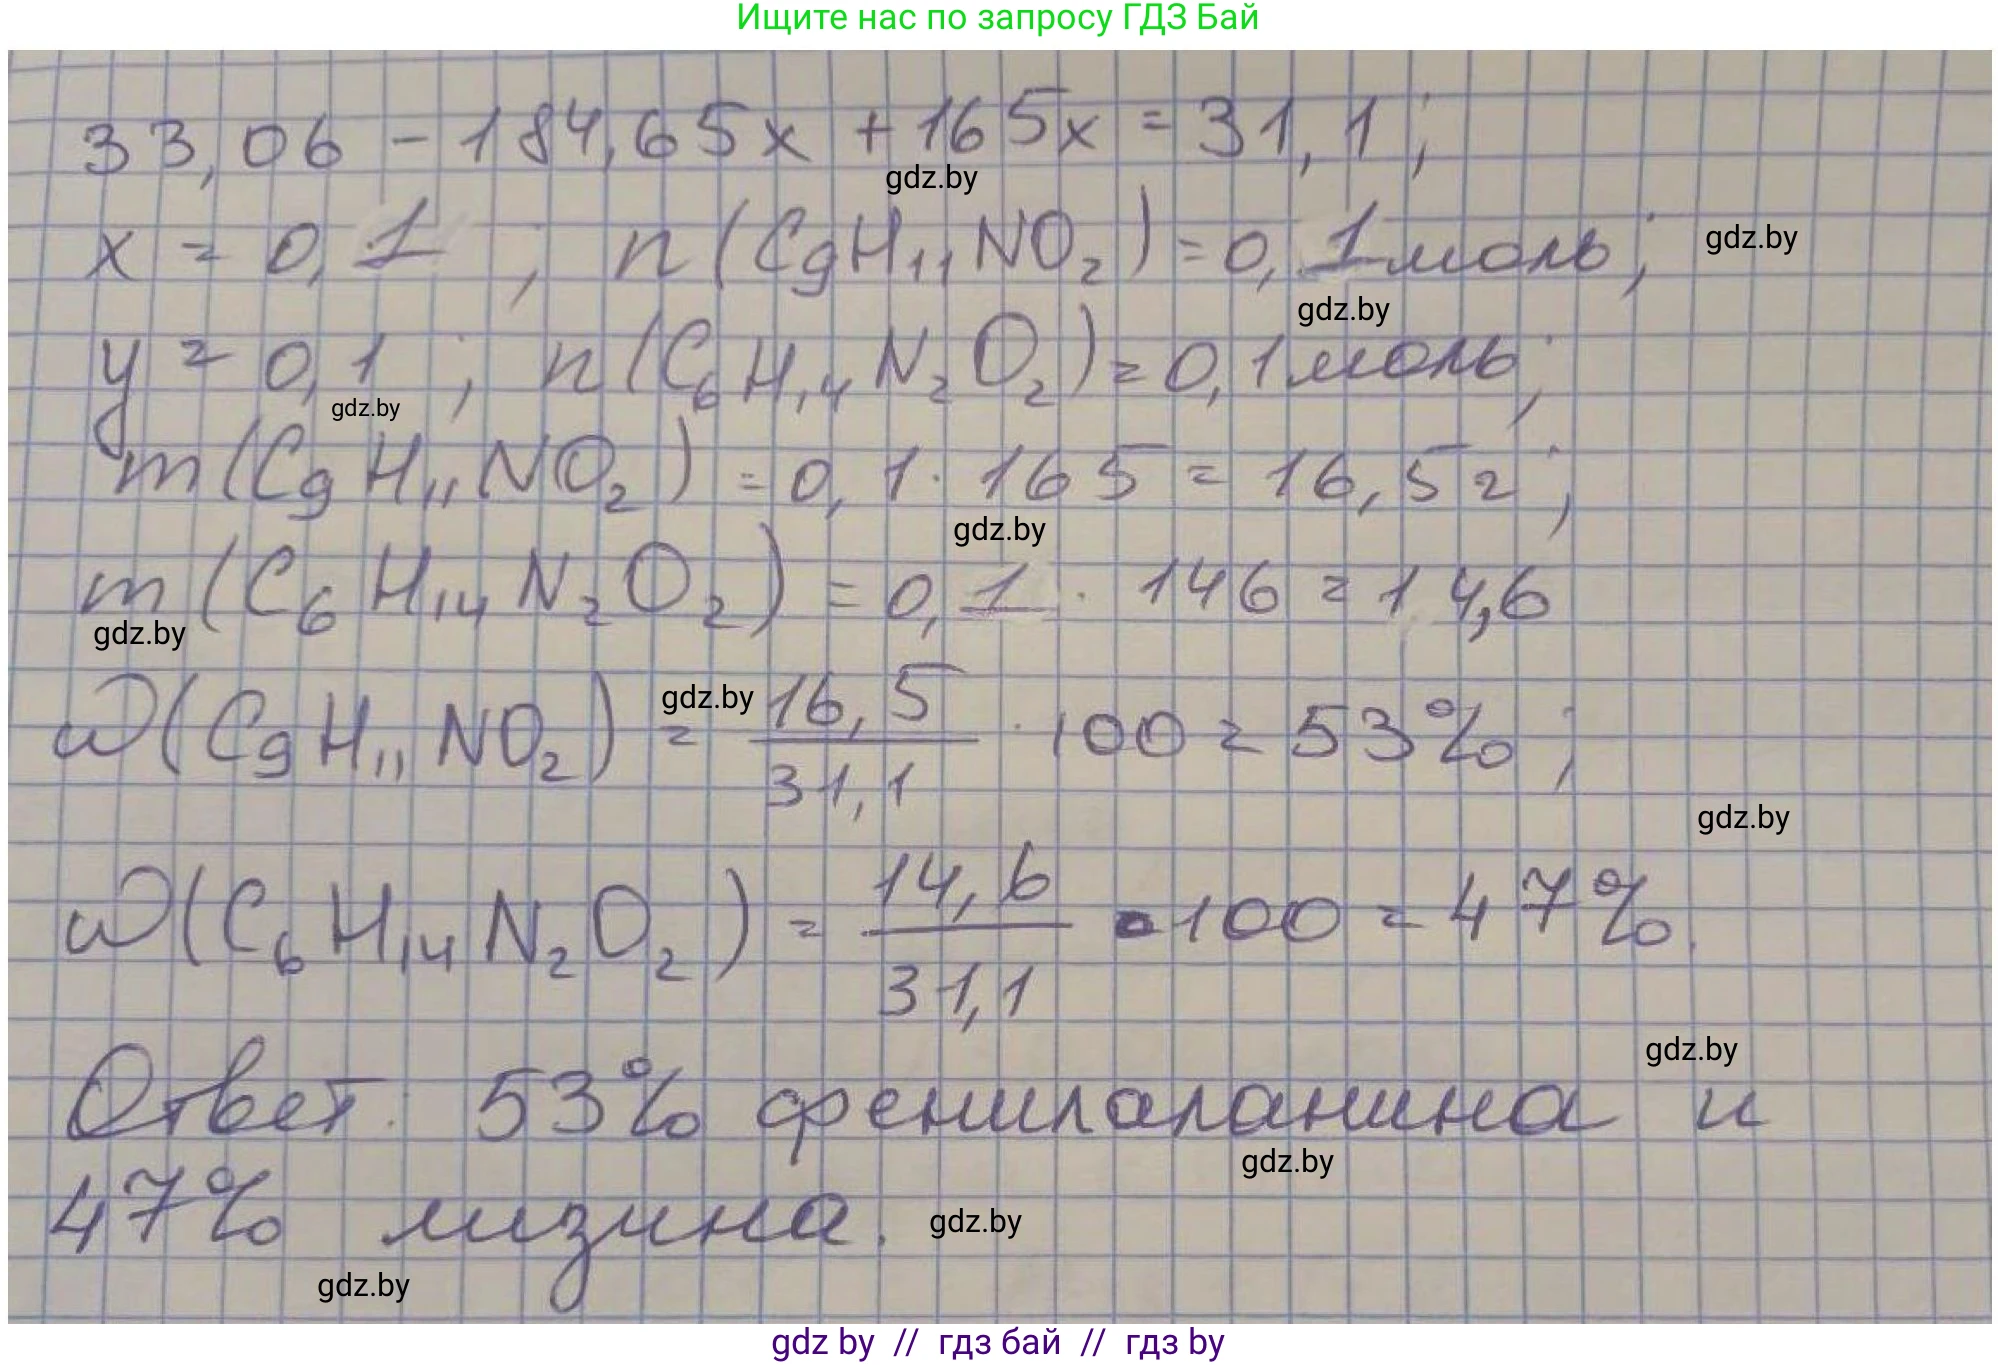 Ищите нас по запросу ГДЗ Бай
33,06 - 184,65x + 165x = 31,1;
gdz.by
x = 0,1; n(C₉H₁₁NO₂) = 0,1 моль;
gdz.by
gdz.by
y = 0,1; n(C₆H₁₄N₂O₂) = 0,1 моль;
gdz.by
m(C₉H₁₁NO₂) = 0,1 · 165 = 16,5 г;
gdz.by
m(C₆H₁₄N₂O₂) = 0,1 · 146 = 14,6
gdz.by
ω(C₉H₁₁NO₂) = 16,5/31,1 · 100 = 53%;
gdz.by
gdz.by
ω(C₆H₁₄N₂O₂) = 14,6/31,1 · 100 = 47%.
gdz.by
Ответ: 53% фенилаланина и
gdz.by
47% лизина.
gdz.by
gdz.by
gdz by // гдз бай // гдз by